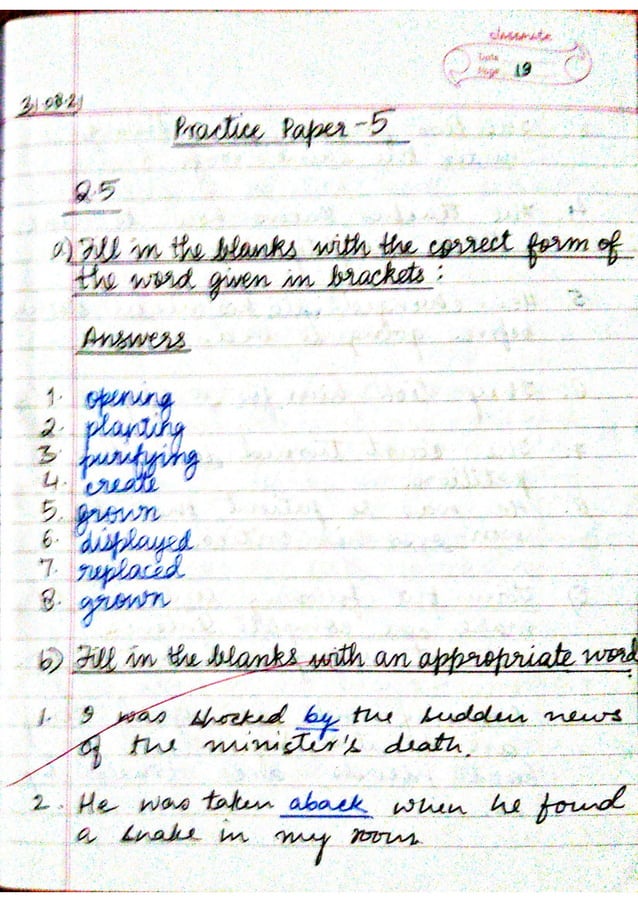 classmate
Date
Page 19
31·08·21
Practice Paper-5
Q.5
a) Fill in the blanks with the correct form of
the word given in brackets :
Answers
1. opening
2. planting
3. purifying
4. create
5. grown
6. displayed
7. replaced
8. grown
b) Fill in the blanks with an appropriate word:
1. I was shocked by the sudden news
of the minister's death.
2. He was taken aback when he found
a snake in my room